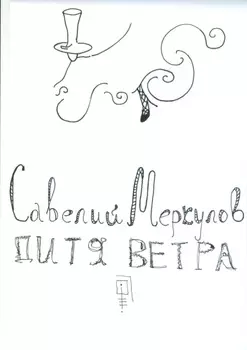 Савелий Меркулов
ДИТЯ ВЕТРА